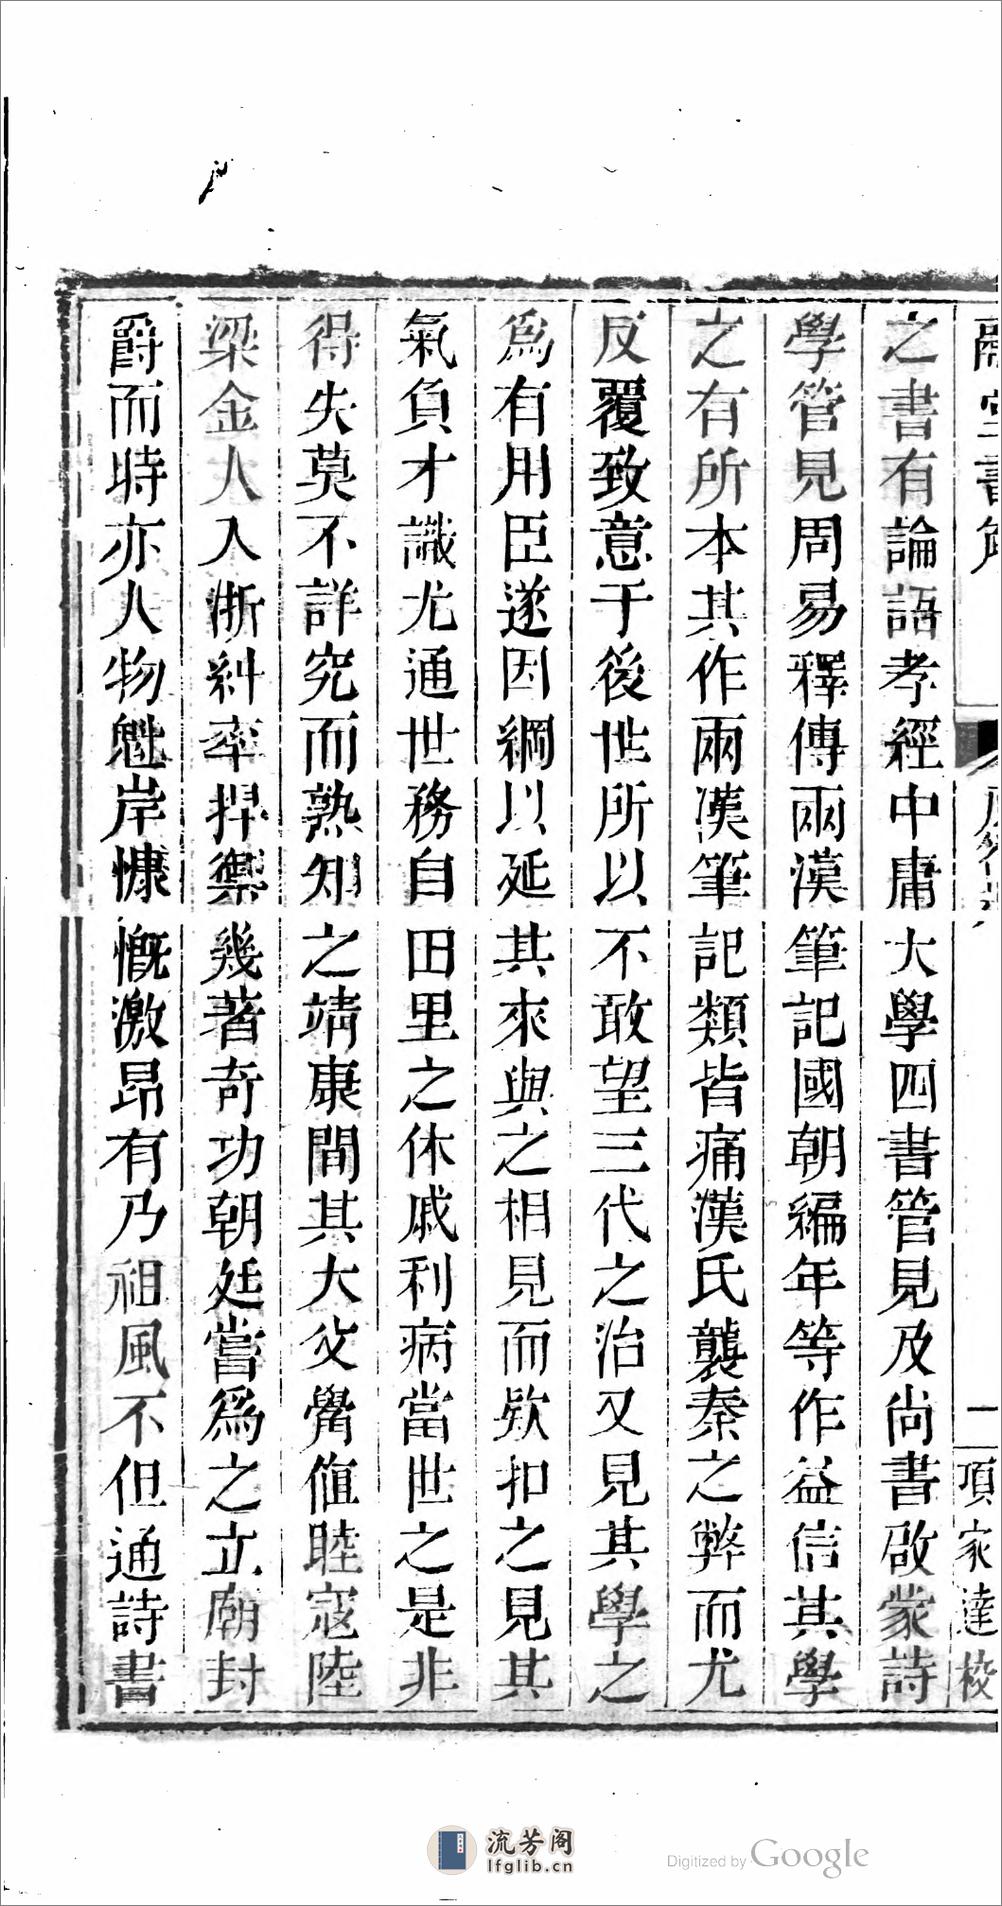 融堂書解
一
項家達校
之書有論語孝經中庸大學四書管見及尚書啟蒙詩
學管見周易釋傳兩漢筆記國朝編年等作益信其學
之有所本其作兩漢筆記類皆痛漢氏襲秦之弊而尤
反覆致意于後世所以不敢望三代之治又見其學之
為有用臣遂因綱以延其來與之相見而欵扣之見其
氣負才識尤通世務自田里之休戚利病當世之是非
得失莫不詳究而熟知之靖康間其大父覺值睦寇陸
梁金人入浙糾率捍禦幾著奇功朝廷嘗為之立廟封
爵而時亦人物魁岸慷慨激昂有乃祖風不但通詩書
流芳阁
lfglib.cn
Digitized by Google